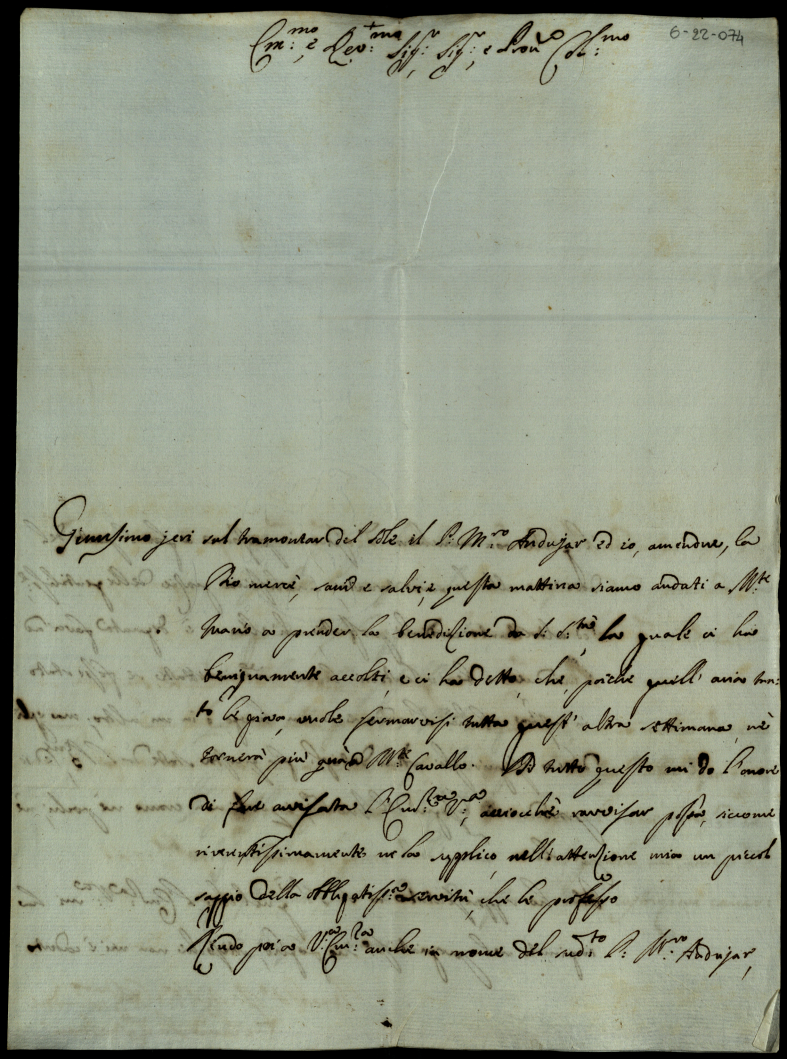 6-22-074
Em:mo e Rev:mo Sig:r Sig:r e Pron Col:mo
Giunsimo jeri sul tramontar del Sole il P: M:ro Andujar ed io, amendue, la
Dio mercè, sani e salvi, e questa mattina siamo andati a M:te
Mario a prender la benedizione da S: S:tà, la quale ci ha
benignamente accolti, e ci ha detto, che, poichè quell' aria mol
to le giova, vuole fermarvisi tutta quest' altra settimana, nè
tornerà più a M:te Cavallo. Di tutto questo mi do l'onore
di fare avvisata l'Em:za V:ra, acciocchè ravvisar possa, siccome
riverentissimamente ne la supplico, nell' attenzione mia un piccol
saggio della obbligatiss:a servitù, che le professo
Rendo poi a V:a Em:za anche in nome del sud:to P: M:ro Andujar,